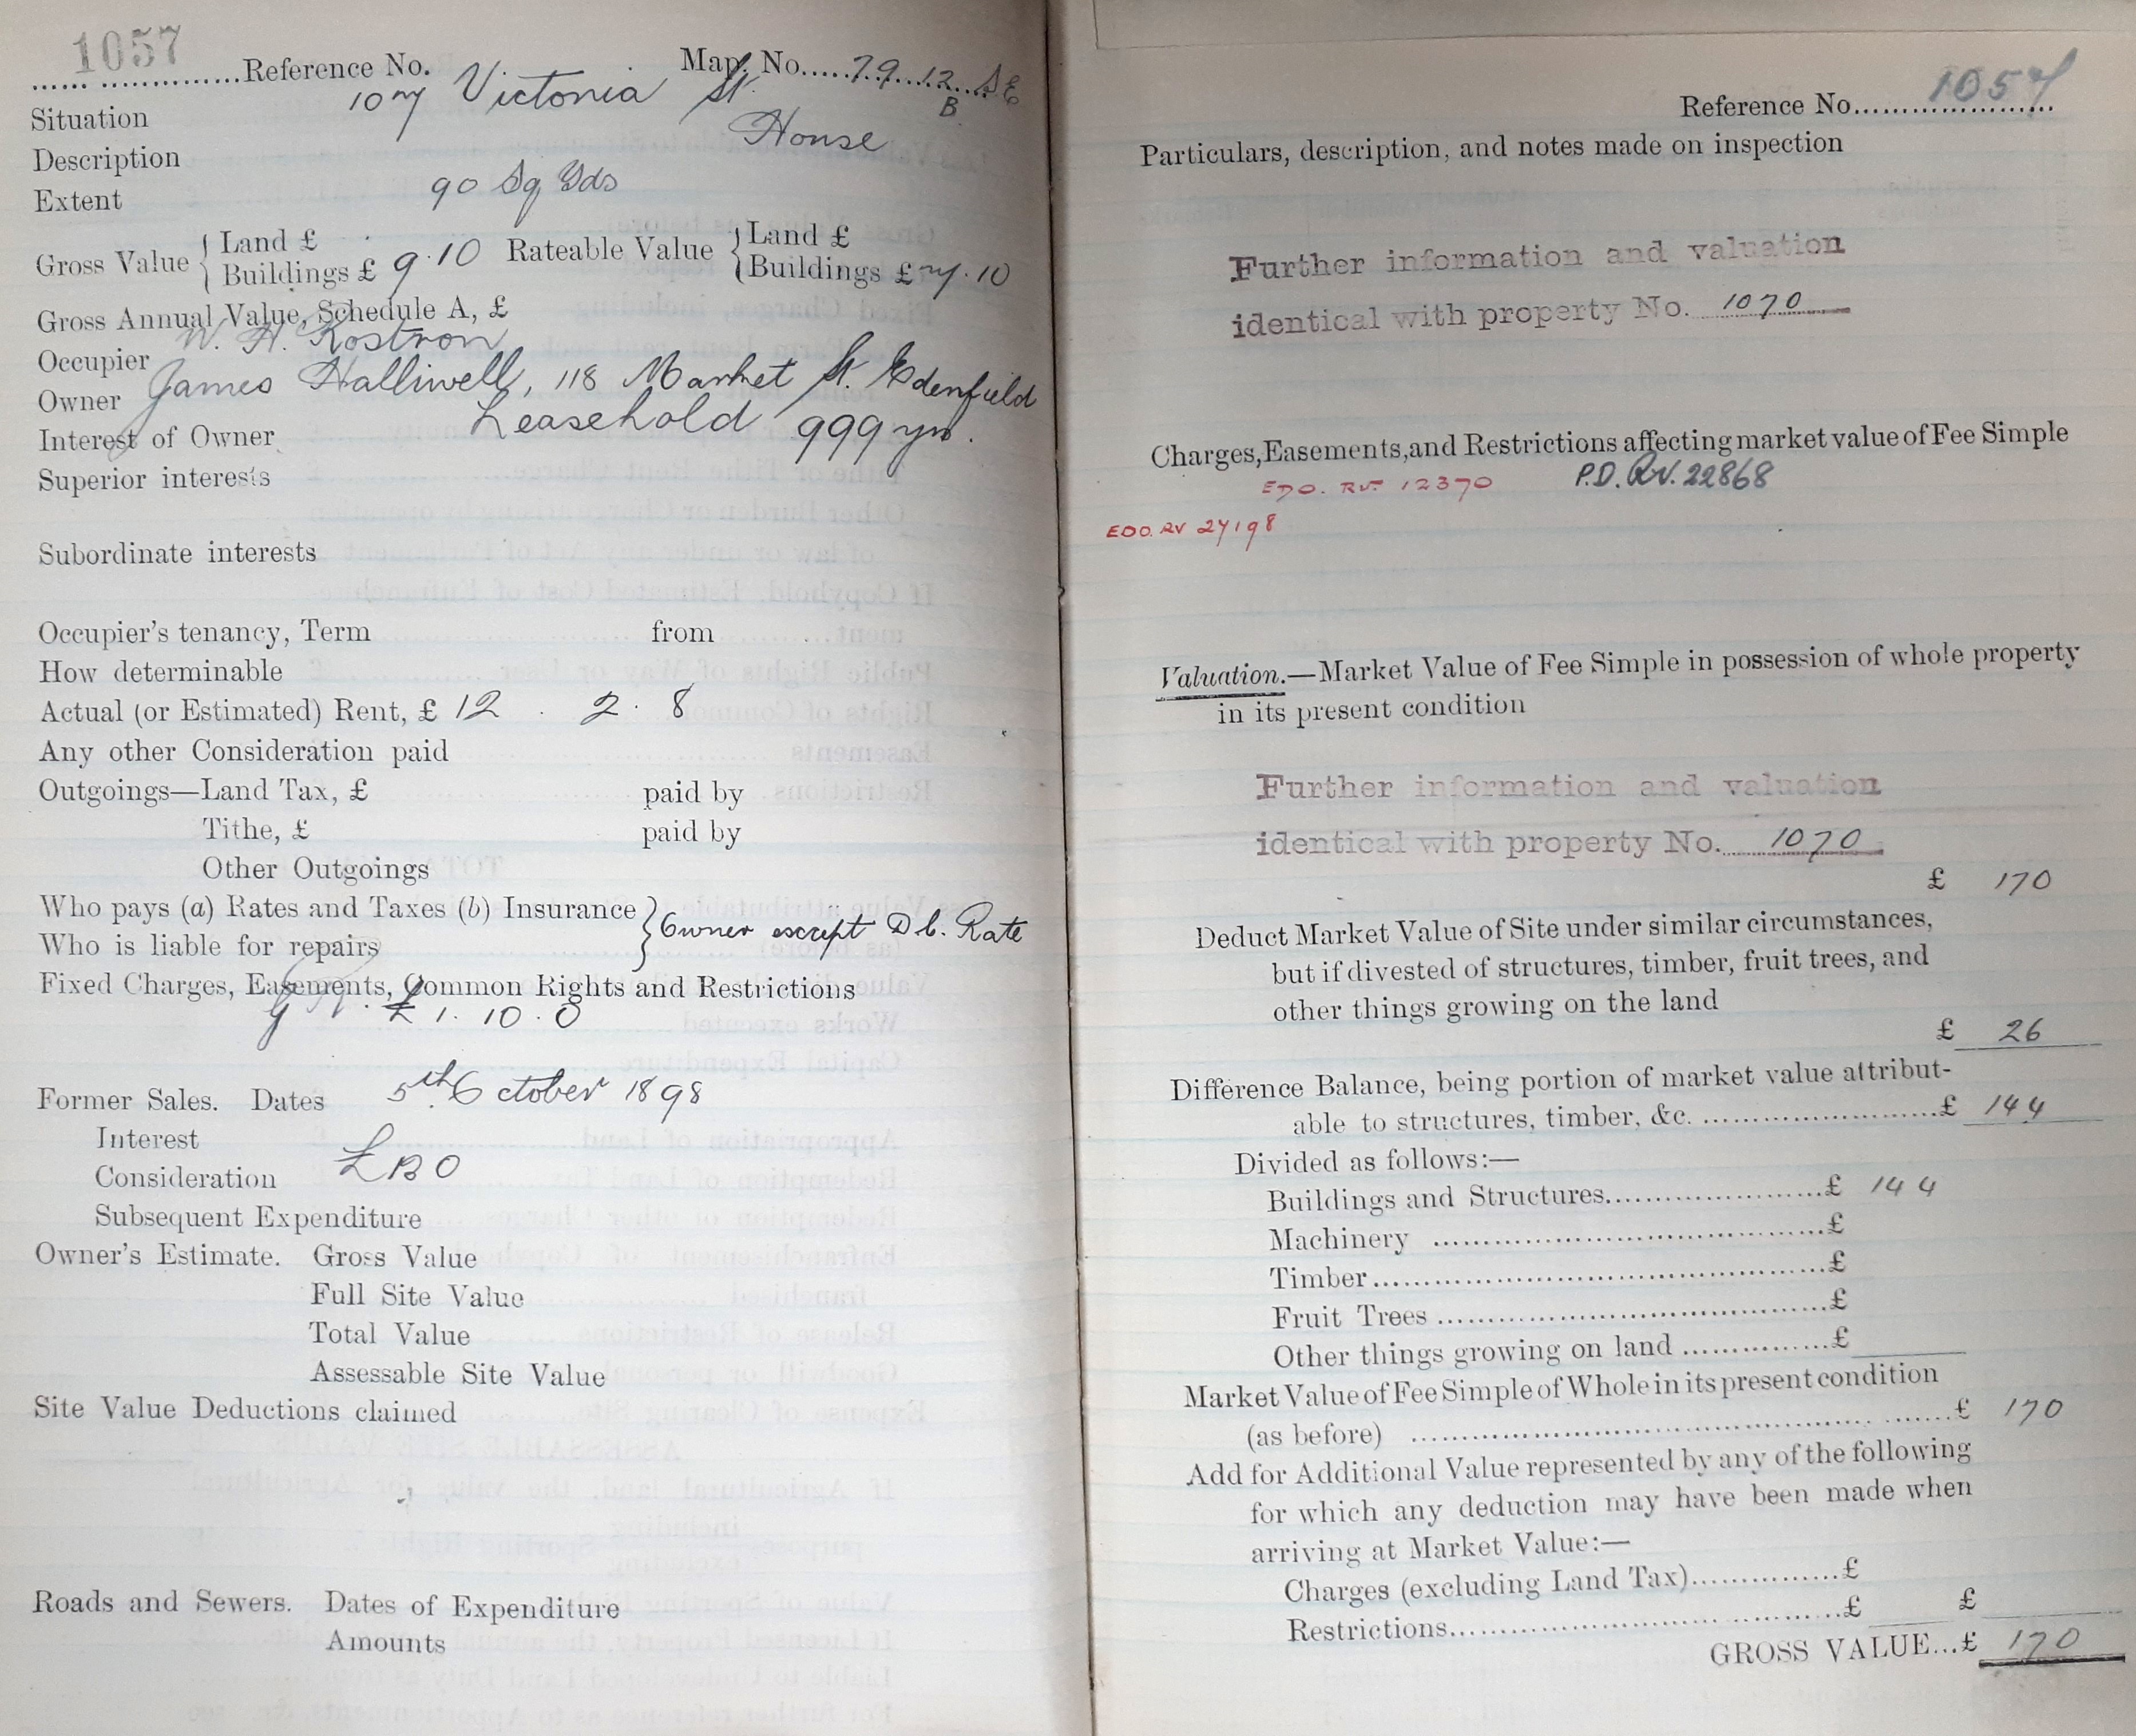 1057
Reference No. Map No. 79.12.SE
B
Situation 107 Victoria St.
Description House
Extent 90 Sq Yds
Gross Value { Land £ Rateable Value { Land £
Buildings £ 9.10 Buildings £ 7.10
Gross Annual Value, Schedule A, £
Occupier W. H. Rostron
Owner James Halliwell, 118 Market St. Edenfield
Interest of Owner Leasehold 999 yrs.
Superior interests
Subordinate interests
Occupier's tenancy, Term from
How determinable
Actual (or Estimated) Rent, £ 12 . 2 . 8
Any other Consideration paid
Outgoings—Land Tax, £ paid by
Tithe, £ paid by
Other Outgoings
Who pays (a) Rates and Taxes (b) Insurance } Owner except D b. Rate
Who is liable for repairs
Fixed Charges, Easements, Common Rights and Restrictions
G R. £ 1. 10. 0
Former Sales. Dates 5th October 1898
Interest
Consideration
Subsequent Expenditure
Owner's Estimate. Gross Value
Full Site Value
Total Value
Assessable Site Value
Site Value Deductions claimed
Roads and Sewers. Dates of Expenditure
Amounts
Reference No. 1057
Particulars, description, and notes made on inspection
Further information and valuation
identical with property No. 1070
Charges, Easements, and Restrictions affecting market value of Fee Simple
EDO. RV. 12370 P.D. RV. 22868
EDO. RV 27198
Valuation.—Market Value of Fee Simple in possession of whole property
in its present condition
Further information and valuation
identical with property No. 1070
£ 170
Deduct Market Value of Site under similar circumstances,
but if divested of structures, timber, fruit trees, and
other things growing on the land
£ 26
Difference Balance, being portion of market value attribut-
able to structures, timber, &c. £ 144
Divided as follows:—
Buildings and Structures £ 144
Machinery £
Timber £
Fruit Trees £
Other things growing on land £
Market Value of Fee Simple of Whole in its present condition
(as before) £ 170
Add for Additional Value represented by any of the following
for which any deduction may have been made when
arriving at Market Value:—
Charges (excluding Land Tax) £
Restrictions £ £
GROSS VALUE...£ 170